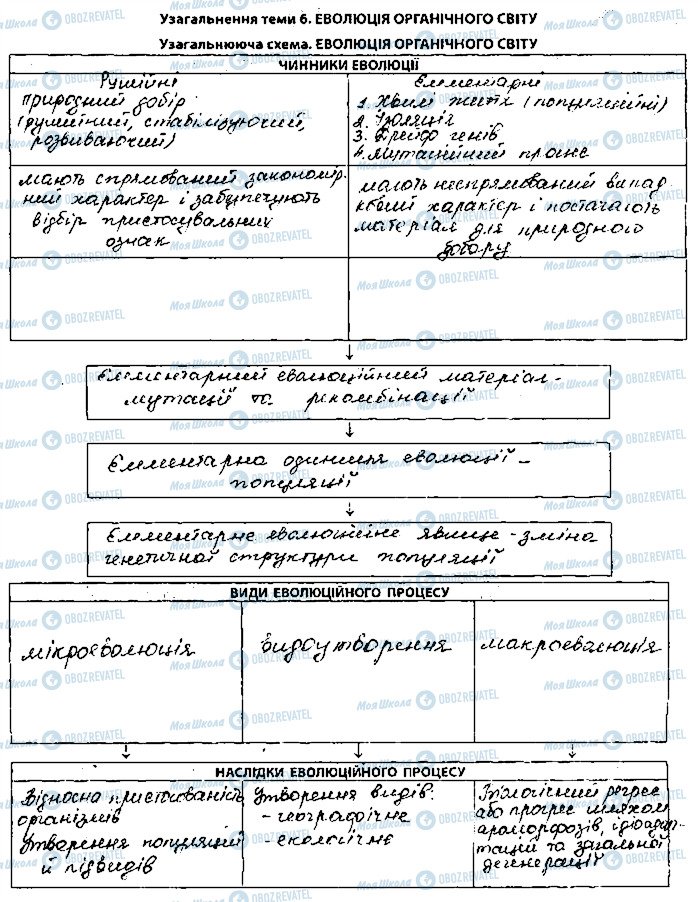 Узагальнення теми 6. ЕВОЛЮЦІЯ ОРГАНІЧНОГО СВІТУ
Узагальнююча схема. ЕВОЛЮЦІЯ ОРГАНІЧНОГО СВІТУ
ЧИННИКИ ЕВОЛЮЦІЇ
Рушійні
природний добір
(рушійний, стабілізуючий,
розвиваючий)
Елементарні
1. Хвилі життя (популяційні)
2. Ізоляція
3. Дрейф генів
4. Мутаційний процес
мають спрямований закономір
ний характер і забезпечують
відбір пристосувальних
ознак
мають неспрямований випад
ковий характер і постачають
матеріал для природного
добору
Елементарний еволюційний матеріал-
мутації та рекомбінації
Елементарна одиниця еволюції -
популяції
Елементарне еволюційне явище - зміна
генетичної структури популяції
ВИДИ ЕВОЛЮЦІЙНОГО ПРОЦЕСУ
мікроеволюція
видоутворення
макроеволюція
НАСЛІДКИ ЕВОЛЮЦІЙНОГО ПРОЦЕСУ
Відносна пристосованість
організмів
Утворення популяцій
й підвидів
Утворення видів:
- географічне
- екологічне
Біологічний регрес
або прогрес шляхом
ароморфозів, ідіоадап-
тацій та загальної
дегенерації
Моя Школа OBOZREVATEL